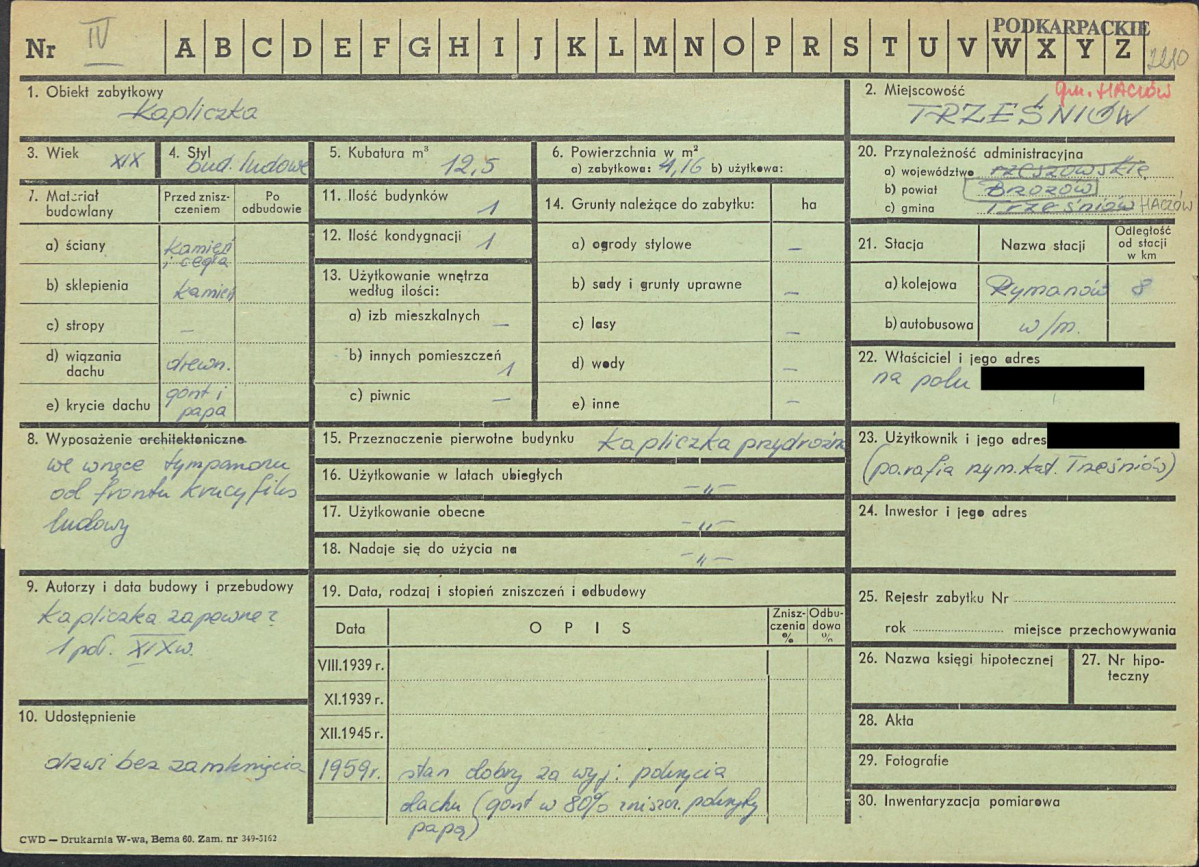 Nr IV A B C D E F G H I J K L M N O P R S T U V W X Y Z
PODKARPACKIE
1. Obiekt zabytkowy
Kapliczka
2. Miejscowość
gm. HACZÓW
TRZEŚNIÓW
3. Wiek XIX
4. Styl bud. ludowe
5. Kubatura m³ 12,5
6. Powierzchnia w m²
a) zabytkowa: 4,16 b) użytkowa:
20. Przynależność administracyjna
a) województwo rzeszowskie
b) powiat BRZOZÓW
c) gmina Trześniów HACZÓW
7. Materiał budowlany
Przed zniszczeniem
Po odbudowie
a) ściany kamień i cegła
b) sklepienia kamień
c) stropy –
d) wiązania dachu drewn.
e) krycie dachu gont i papa
11. Ilość budynków 1
12. Ilość kondygnacji 1
13. Użytkowanie wnętrza
według ilości:
a) izb mieszkalnych –
b) innych pomieszczeń 1
c) piwnic –
14. Grunty należące do zabytku: ha
a) ogrody stylowe –
b) sady i grunty uprawne –
c) lasy –
d) wody –
e) inne –
21. Stacja
Nazwa stacji
Odległość od stacji w km
a) kolejowa Rymanów 8
b) autobusowa w/m.
22. Właściciel i jego adres
na polu
8. Wyposażenie architektoniczne
we wnęce tympanonu
od frontu krucyfiks
ludowy
15. Przeznaczenie pierwotne budynku kapliczka przydrożna
16. Użytkowanie w latach ubiegłych –„–
17. Użytkowanie obecne –„–
18. Nadaje się do użycia na –„–
23. Użytkownik i jego adres
(parafia rzym. kat. Trześniów)
24. Inwestor i jego adres
9. Autorzy i data budowy i przebudowy
Kapliczka zapewne z
1 poł. XIX w.
19. Data, rodzaj i stopień zniszczeń i odbudowy
Data
OPIS
Zniszczenia %
Odbudowa %
VIII.1939 r.
XI.1939 r.
XII.1945 r.
1959 r. stan dobry za wyj. pokrycia
dachu (gont w 80% zniszcz. pokryty
papą)
25. Rejestr zabytku Nr
rok miejsce przechowywania
26. Nazwa księgi hipotecznej
27. Nr hipoteczny
10. Udostępnienie
drzwi bez zamknięcia
28. Akta
29. Fotografie
30. Inwentaryzacja pomiarowa
CWD — Drukarnia W-wa, Bema 60. Zam. nr 349-3162